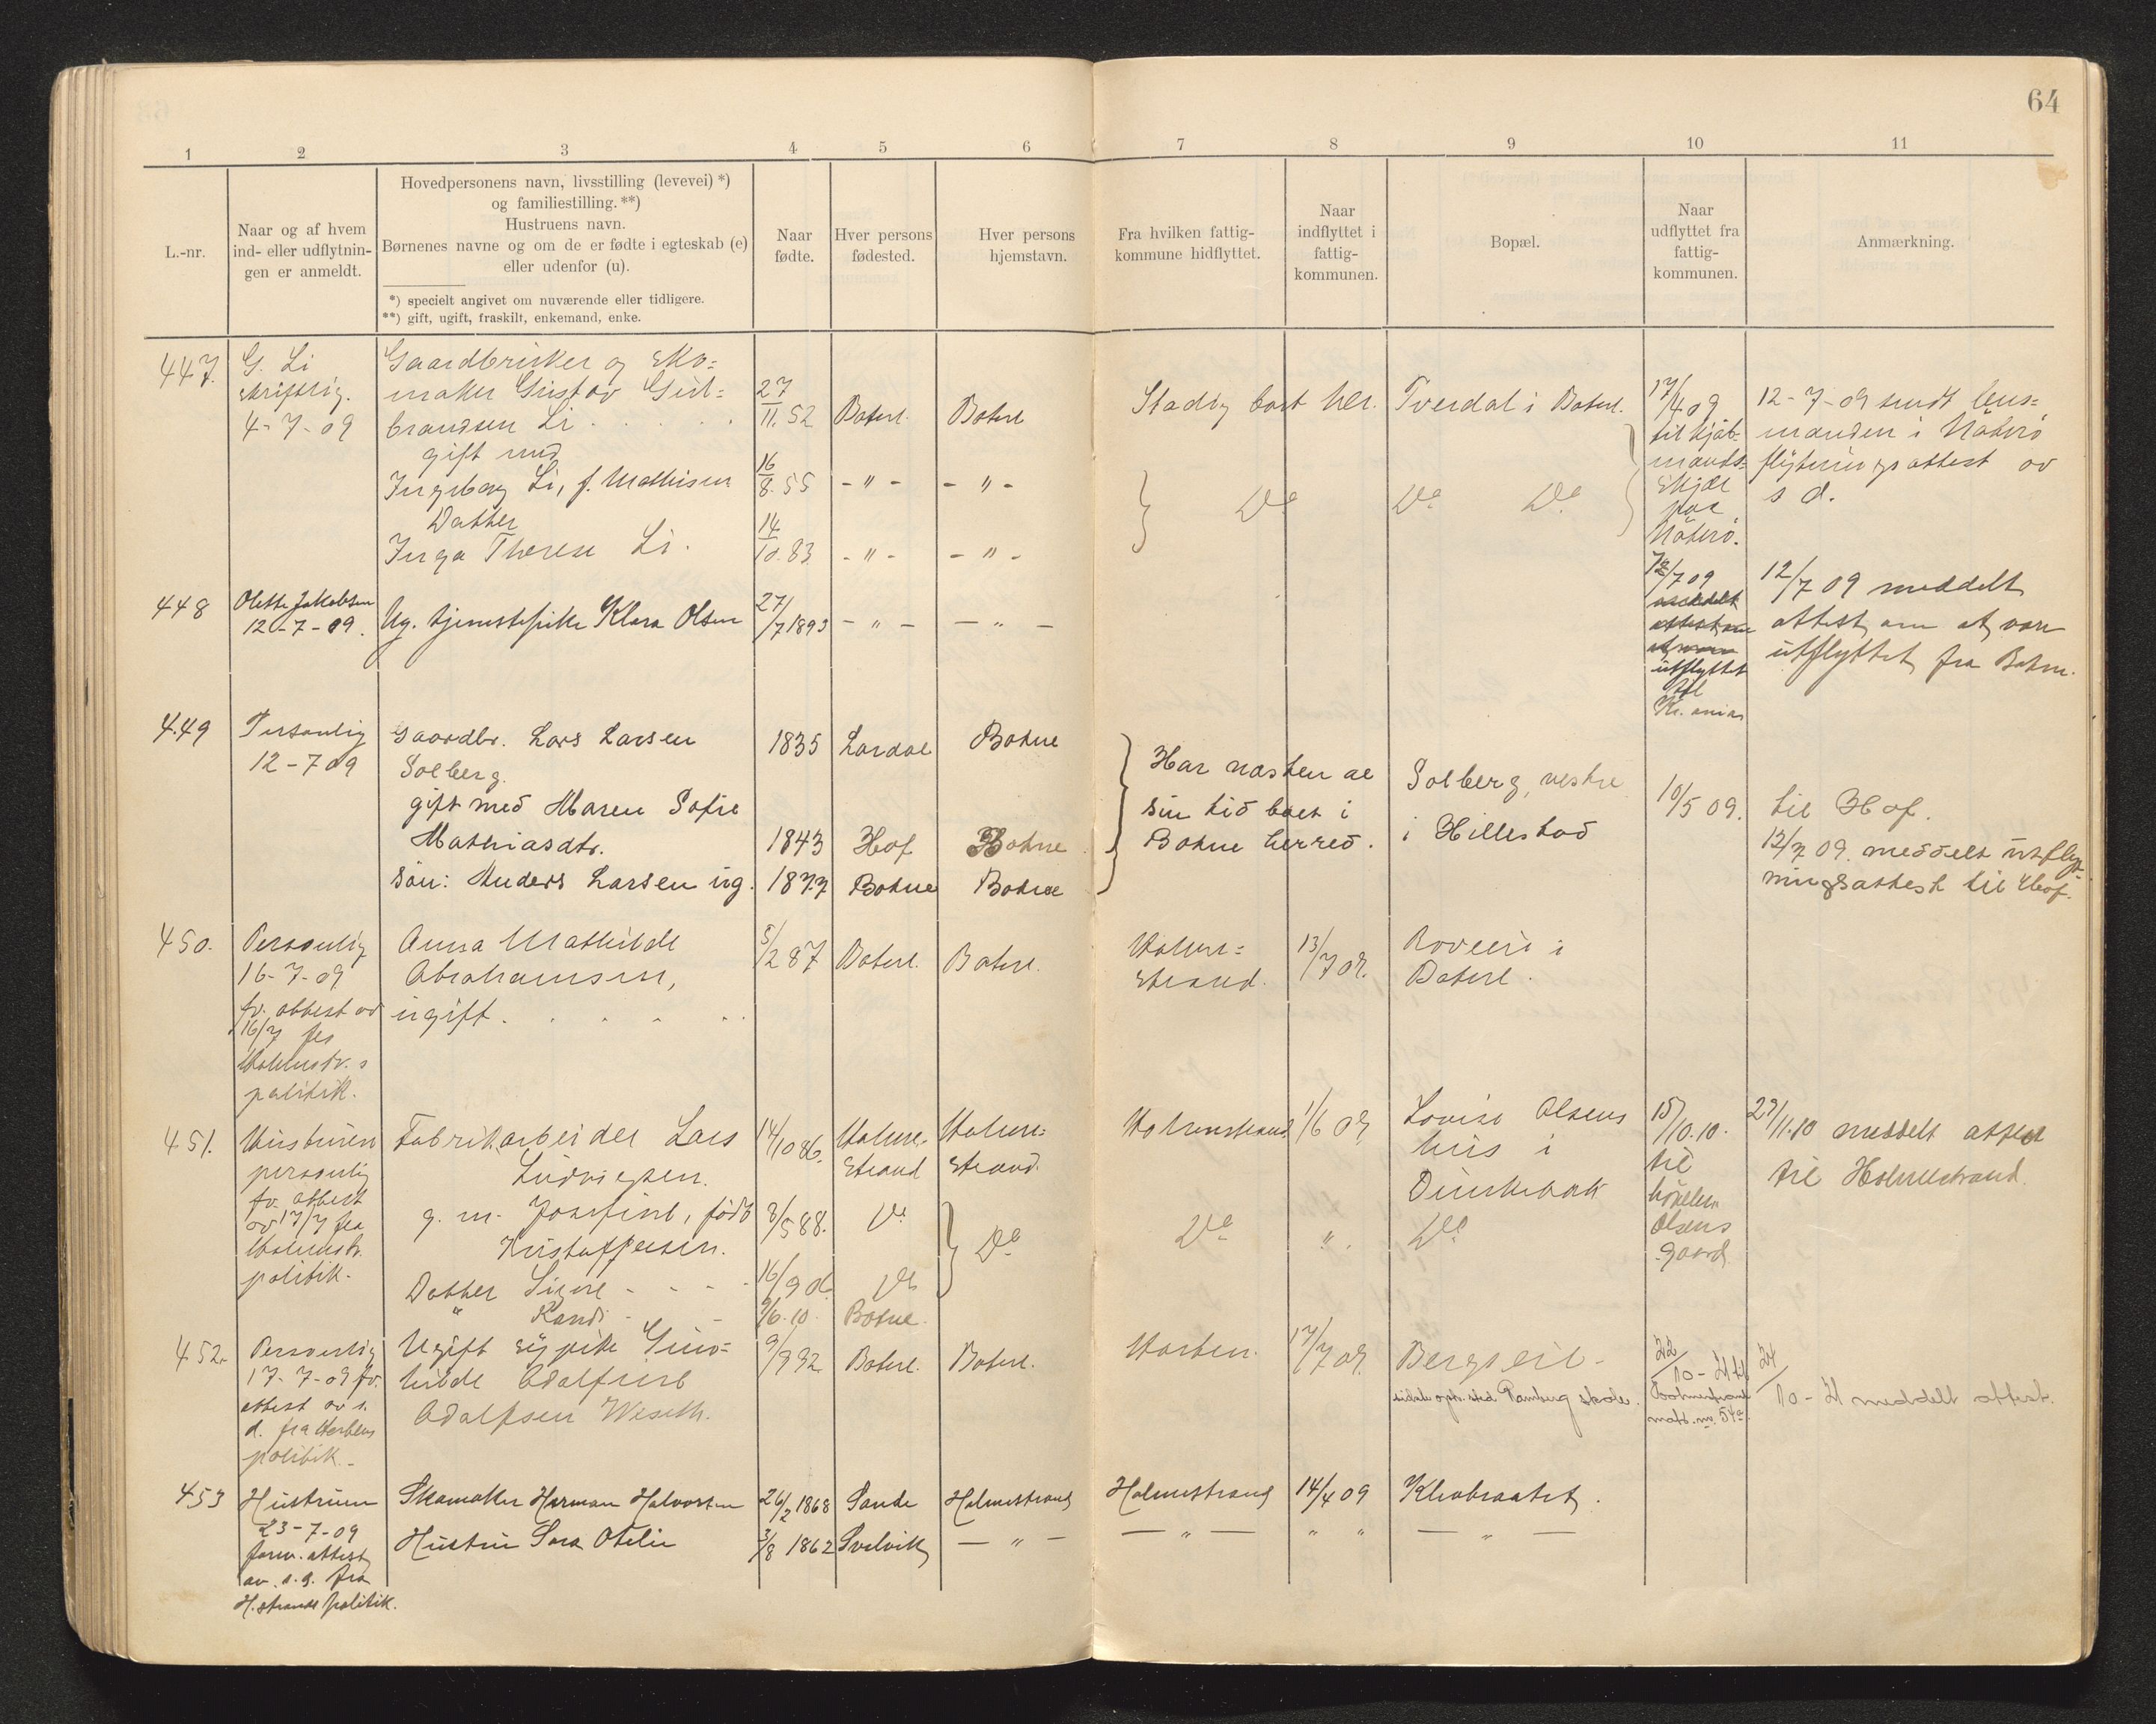 64
1 2 3 4 5 6 7 8 9 10 11
L.-nr.
Naar og af hvem
ind- eller udflytnin-
gen er anmeldt.
Hovedpersonens navn, livsstilling (levevei) *)
og familiestilling. **)
Hustruens navn.
Børnenes navne og om de er fødte i egteskab (e)
eller udenfor (u).
*) specielt angivet om nuværende eller tidligere.
**) gift, ugift, fraskilt, enkemand, enke.
Naar
fødte.
Hver persons
fødested.
Hver persons
hjemstavn.
Fra hvilken fattig-
kommune hidflyttet.
Naar
indflyttet i
fattig-
kommunen.
Bopæl.
Naar
udflyttet fra
fattig-
kommunen.
Anmærkning.
447.
G. Li
skriftlig.
4-7-09
Gaardbruker og sko-
maker Gustav Gul-
brandsen Li
gift med
Ingeborg Li, f. Mathisen
Datter
Inga Therese Li.
27/11.52
16/8.55
14/10.83
Botne
- " -
- " -
Botne
- " -
- " -
Stadig bort her.
Do
Tverdal i Botne.
Do Do
17/4 09
til Kjøb-
mands-
skjær
paa
Nøterø.
12-7-09 sendt lens-
manden i Nøterø
flytningsattest av
s d.
448
Olette Jakobsen
12-7-09.
Ug. tjenestepike Klara Olsen
27/7 1893
- " -
- " -
12/7 09
meddelt
attest om
at være
utflyttet
til
Kr.ania
12/7 09 meddelt
attest om at være
utflyttet fra Botne.
449
Personlig
12-7 09
Gaardbr. Lars Larsen
Solberg.
gift med Maren Sofie
Mathiasdtr.
Søn: Anders Larsen ug.
1835
1843
1877
Lardal
Hof
Botne
Botne
Botne
Botne
Har næsten al
sin tid boet i
Botne herred.
Solberg, vestre
i Hillestad
10/5 09.
til Hof.
12/7 09. meddelt utflyt-
ningsattest til Hof.
450.
Personlig
16-7-09
fv. attest av
16/7 fra
Holmstr.s
politik.
Anna Mathilde
Abrahamsen,
ugift
5/2 87
Botne.
Botne.
Holme-
strand.
13/7 09.
i
Botne.
451.
Hustruen
personlig
fv. attest
av 17/7 fra
Holmstr.
politik.
Fabrikarbeider Lars
Ludvigsen.
g. m. Josefine, født
Kristoffersen.
Datter Signe
" Randi
14/10 86.
8/5 88.
16/9 0
9/6.10.
Holme-
strand
Do
Do
Botne.
Holme-
strand.
Do
Holmestrand
Do
1/6 09
".
Lovise Olsens
hus i
Dunkebak
Do
15/10.10.
til
Olsens
gaard
29/11.10 meddelt attest
til Holmestrand.
452.
Personlig
17-7-09 fv.
attest av s.
d. fra Hortens
politik.
Ugift sypike Gun-
hilde Adolfine
Adolfsen Weseth.
9/9 92
Botne.
Botne.
Horten.
17/7 09.
skole.
22/10-21 til
24/10-21 meddelt attest.
453
Hustruen
23-7-09
forev. attest
av s.d. fra
H.strands politik.
Skomaker Herman Halvorsen
Hustru Sara Otelie
26/2 1868
3/8 1862
Sande
Svelvik
Holmestrand
- " -
Holmestrand
- " -
14/4 09
" "
Klevbraatet.
- " -